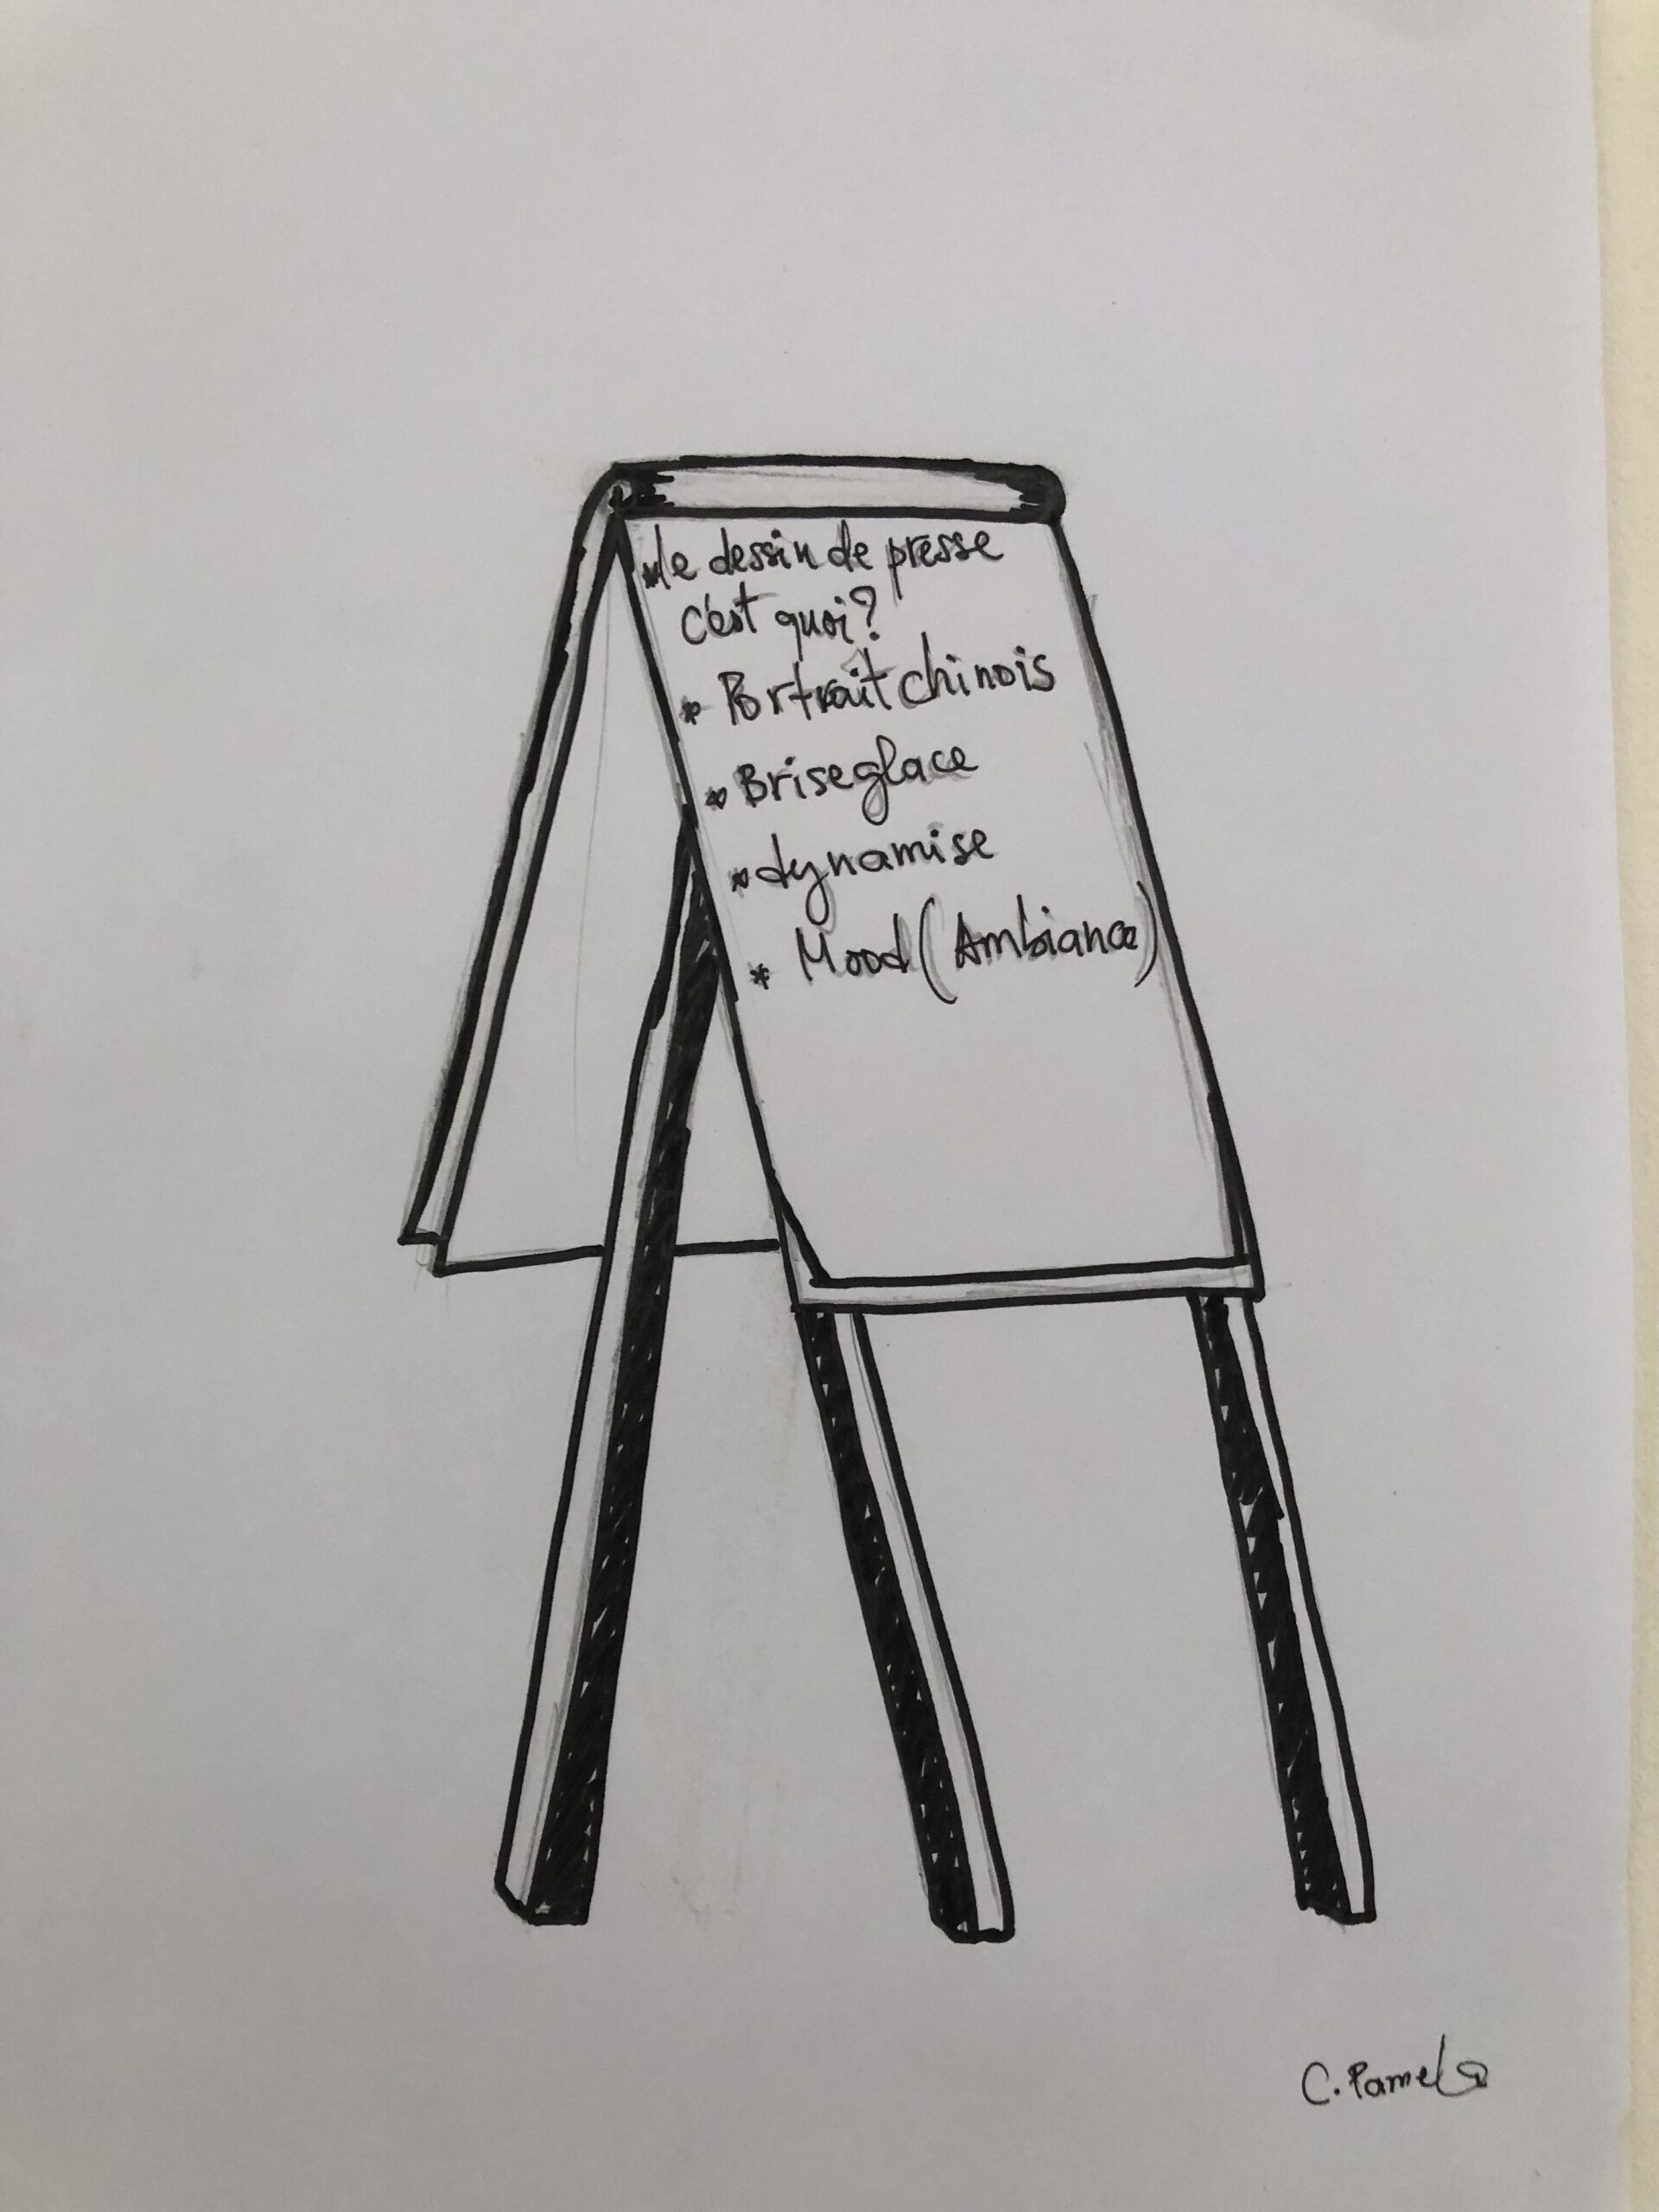 * le dessin de presse
c'est quoi?
* Portrait chinois
* Briseglace
* dynamise
* Mood (Ambiance)
C. Pamela